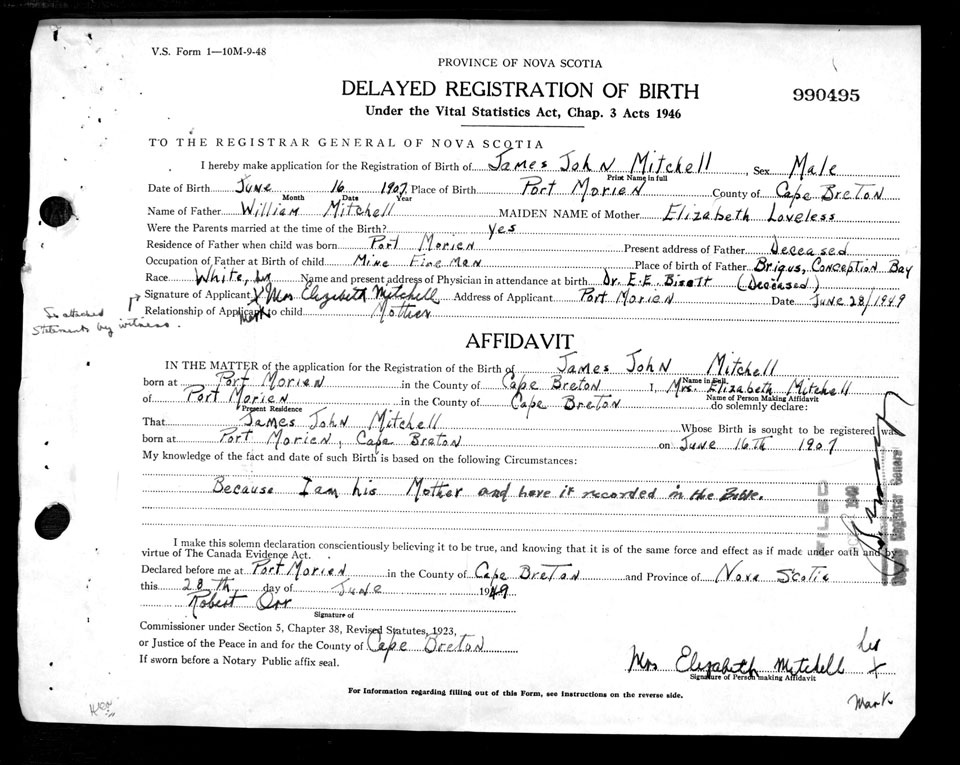 V.S. Form 1—10M-9-48
PROVINCE OF NOVA SCOTIA
DELAYED REGISTRATION OF BIRTH
990495
Under the Vital Statistics Act, Chap. 3 Acts 1946
TO THE REGISTRAR GENERAL OF NOVA SCOTIA
I hereby make application for the Registration of Birth of James John Mitchell, Sex Male
Print Name in full
Date of Birth June 16 1907 Place of Birth Port Morien County of Cape Breton
Month Date Year
Name of Father William Mitchell MAIDEN NAME of Mother Elizabeth Loveless
Were the Parents married at the time of the Birth? yes
Residence of Father when child was born Port Morien Present address of Father Deceased
Occupation of Father at Birth of child Mine Fire Man Place of birth of Father Brigus, Conception Bay
Race White, Name and present address of Physician in attendance at birth Dr. E.E. Bisott (Deceased)
Signature of Applicant X Mrs Elizabeth Mitchell Address of Applicant Port Morien Date June 28/1949
Relationship of Applicant to child Mother
Mark
See attached
Statements by witness.
AFFIDAVIT
IN THE MATTER of the application for the Registration of the Birth of James John Mitchell
Name in Full
born at Port Morien in the County of Cape Breton I, Mrs. Elizabeth Mitchell
Name of Person Making Affidavit
of Port Morien in the County of Cape Breton do solemnly declare:
Present Residence
That James John Mitchell Whose Birth is sought to be registered was
born at Port Morien, Cape Breton on June 16th 1907
My knowledge of the fact and date of such Birth is based on the following Circumstances:
Because I am his Mother and have it recorded in the Bible.
I make this solemn declaration conscientiously believing it to be true, and knowing that it is of the same force and effect as if made under oath and by
virtue of The Canada Evidence Act.
Declared before me at Port Morien in the County of Cape Breton and Province of Nova Scotia
this 28th day of June 1949
Robert Orr
Signature of
Commissioner under Section 5, Chapter 38, Revised Statutes, 1923,
or Justice of the Peace in and for the County of Cape Breton
If sworn before a Notary Public affix seal.
Mrs Elizabeth Mitchell her X
Signature of Person making Affidavit
Mark
For Information regarding filling out of this Form, see Instructions on the reverse side.
FILED
Deputy Registrar General